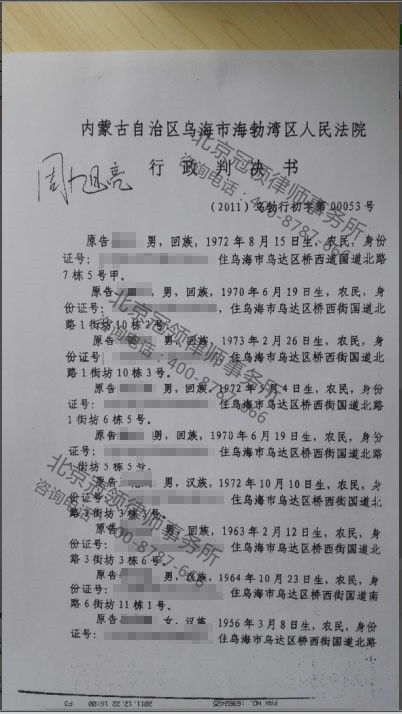 内蒙古自治区乌海市海勃湾区人民法院
周旭亮
行政判决书
(2011)乌勃行初字第00053号
原告 男，回族，1972年8月15日生，农民，身份
证号： 住乌海市乌达区桥西道国道北路
7栋5号甲。
原告 ，男，回族，1970年6月19日生，农民，身
份证号： ，住乌海市乌达区桥西街国道北
路1街坊10栋2号。
原告 男，回族，1973年2月26日生，农民，身
份证号： 住乌海市乌达区桥西街国道北
路1街坊10栋3号。
原告 男，回族，1972年5月4日生，农民，身
份证号： 住乌海市乌达区桥西街国道北路
1街坊6栋5号。
原告 男，回族，1970年6月19日生，农民，身
份证号： 住乌海市乌达区桥西街国道北
路 街坊5栋5号。
原告 ，男，汉族，1972年10月10日生，农民，身
份证号： 住乌海市乌达区桥西街国道北
路3街坊3栋 号。
原告 男，回族，1963年2月12日生，农民，身
份证号： 住乌海市乌达区桥西街国道北
路3街坊3栋6号。
原告 男，汉族，1964年10月23日生，农民，身
份证号： 住乌海市乌达区桥西街国道南
路6街坊11栋1号。
原告 女，汉族，1956年3月8日生，农民，身份
证号： 住乌海市乌达区桥西街国道北路
-1-
2011.12.22 16:00 P3
FAX NO. :6982425
北京冠领律师事务所
咨询电话：400-8787-666
北京冠领律师事务所
咨询电话：400-8787-666
北京冠领律师事务所
咨询电话：400-8787-666